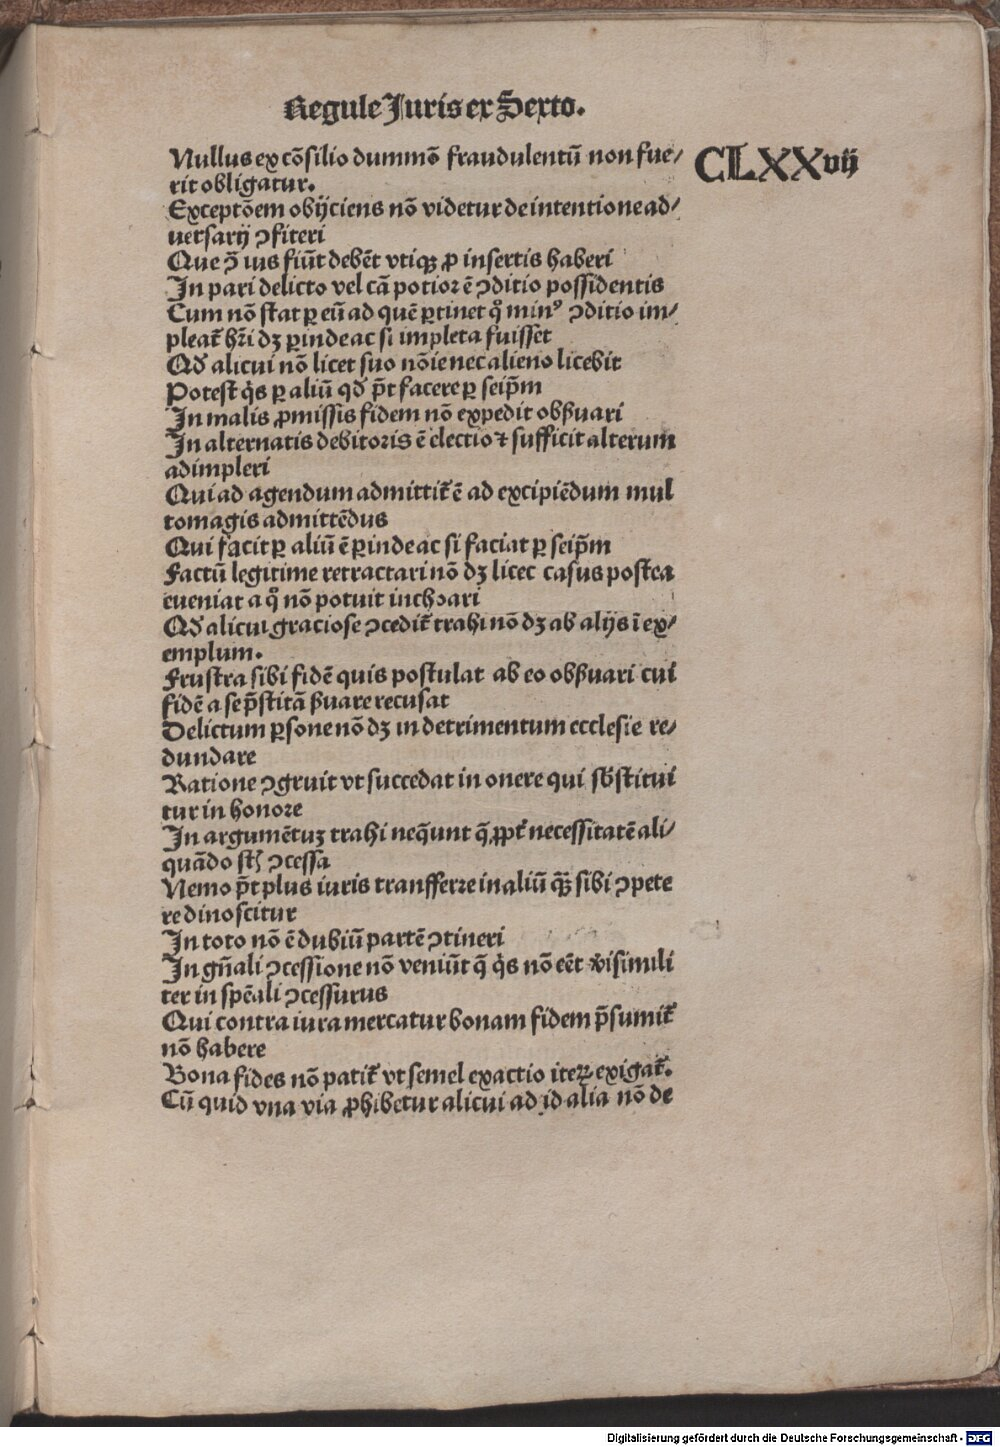 Regule Juris ex Sexto.
CLXXvij
Nullus ex cõsilio dummõ fraudulentũ non fue/
rit obligatur.
Exceptõem obijciens nõ videtur de intentione ad/
uersarij ꝯfiteri
Que ꝯ̃ ius fiũt debẽt vtiqꝫ ꝓ infectis haberi
In pari delicto vel cã potior ẽ ꝯditio possidentis
Cum nõ stat ꝑ eũ ad quẽ ꝑtinet qͦ minꝰ ꝯditio im/
pleat᷑ hr̃i dꝫ ꝑinde ac si impleta fuisset
Qđ alicui nõ licet suo nõie nec alieno licebit
Potest qͥs ꝑ aliũ qđ p̃t facere ꝑ seip̃m
In malis ꝓmissis fidem nõ expedit obẞuari
In alternatis debitoris ẽ electio ⁊ sufficit alterum
adimpleri
Qui ad agendum admittit᷑ ẽ ad excipiẽdum mul
tomagis admittẽdus
Qui facit ꝑ aliũ ẽ ꝑinde ac si faciat ꝑ seip̃m
Factũ legitime retractari nõ dꝫ licec casus postea
eueniat a qͦ nõ potuit inchoari
Qđ alicui graciose ꝯcedit᷑ trahi nõ dꝫ ab alijs ĩ ex/
emplum.
Frustra sibi fidẽ quis postulat ab eo obẞuari cui
fidẽ a se p̃stitã ẞuare recusat
Delictum ꝑsone nõ dꝫ in detrimentum ecclesie re/
dundare
Ratione ꝯgruit vt succedat in onere qui sb̃stitui
tur in honore
In argumẽtuꝫ trahi neq̃unt q̃ ꝓpt᷑ necessitatẽ ali/
quãdo st̃ ꝯcessa
Nemo p̃t plus iuris transferre in aliũ q̃ꝫ sibi ꝯpete
re dinoscitur
In toto nõ ẽ dubiũ partẽ ꝯtineri
In gñali ꝯcessione nõ veniũt q̃ qͥs nõ eẽt v̓isimili
ter in spẽali ꝯcessurus
Qui contra iura mercatur bonam fidem p̃sumit᷑
nõ habere
Bona fides nõ patit᷑ vt semel exactio iteꝝ exigat᷑.
Cũ quid vna via ꝓhibetur alicui ad id alia nõ de
Digitalisierung gefördert durch die Deutsche Forschungsgemeinschaft - DFG